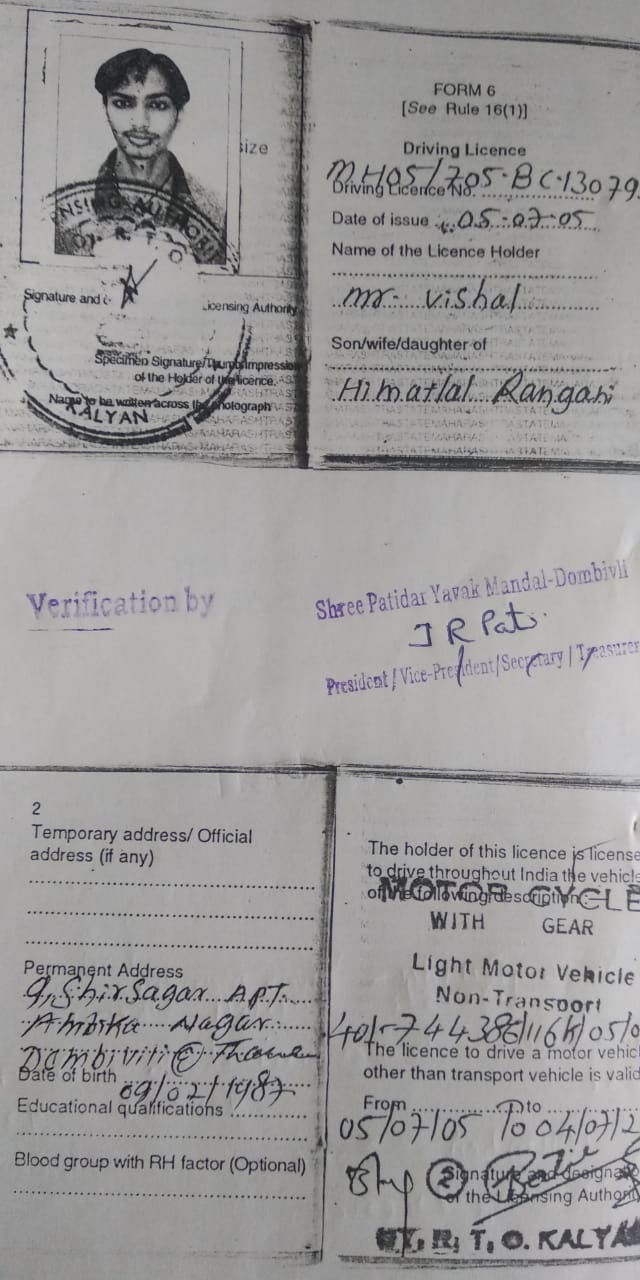 size
ENSING AUTHORI
DY. R. T. O
Signature and
Licensing Authority
Specimen Signature/Thumb Impression
of the Holder of the licence.
Name to be written across the photograph
KALYAN
FORM 6
[See Rule 16(1)]
Driving Licence
MH05/705-BC-13079
Driving Licence No.
Date of issue 05-07-05
Name of the Licence Holder
mr. vishal
Son/wife/daughter of
Himatlal Rangani
Verification by
Shree Patidar Yavak Mandal-Dombivli
J R Pat
President / Vice-President / Secretary / Treasurer
2
Temporary address/ Official
address (if any)
Permanent Address
9, Shirsagar APT.
Ambika Nagar
Date of birth 09/02/1987
Educational qualifications
Blood group with RH factor (Optional)
The holder of this licence is license
to drive throughout India the vehicle
of the following description:
MOTOR CYCLE
WITH GEAR
Light Motor Vehicle
Non-Transport
The licence to drive a motor vehic
other than transport vehicle is valid
From to
05/07/05 To 04/07/2
Signature and designa
of the Licensing Authori
DY. R. T. O. KALYA